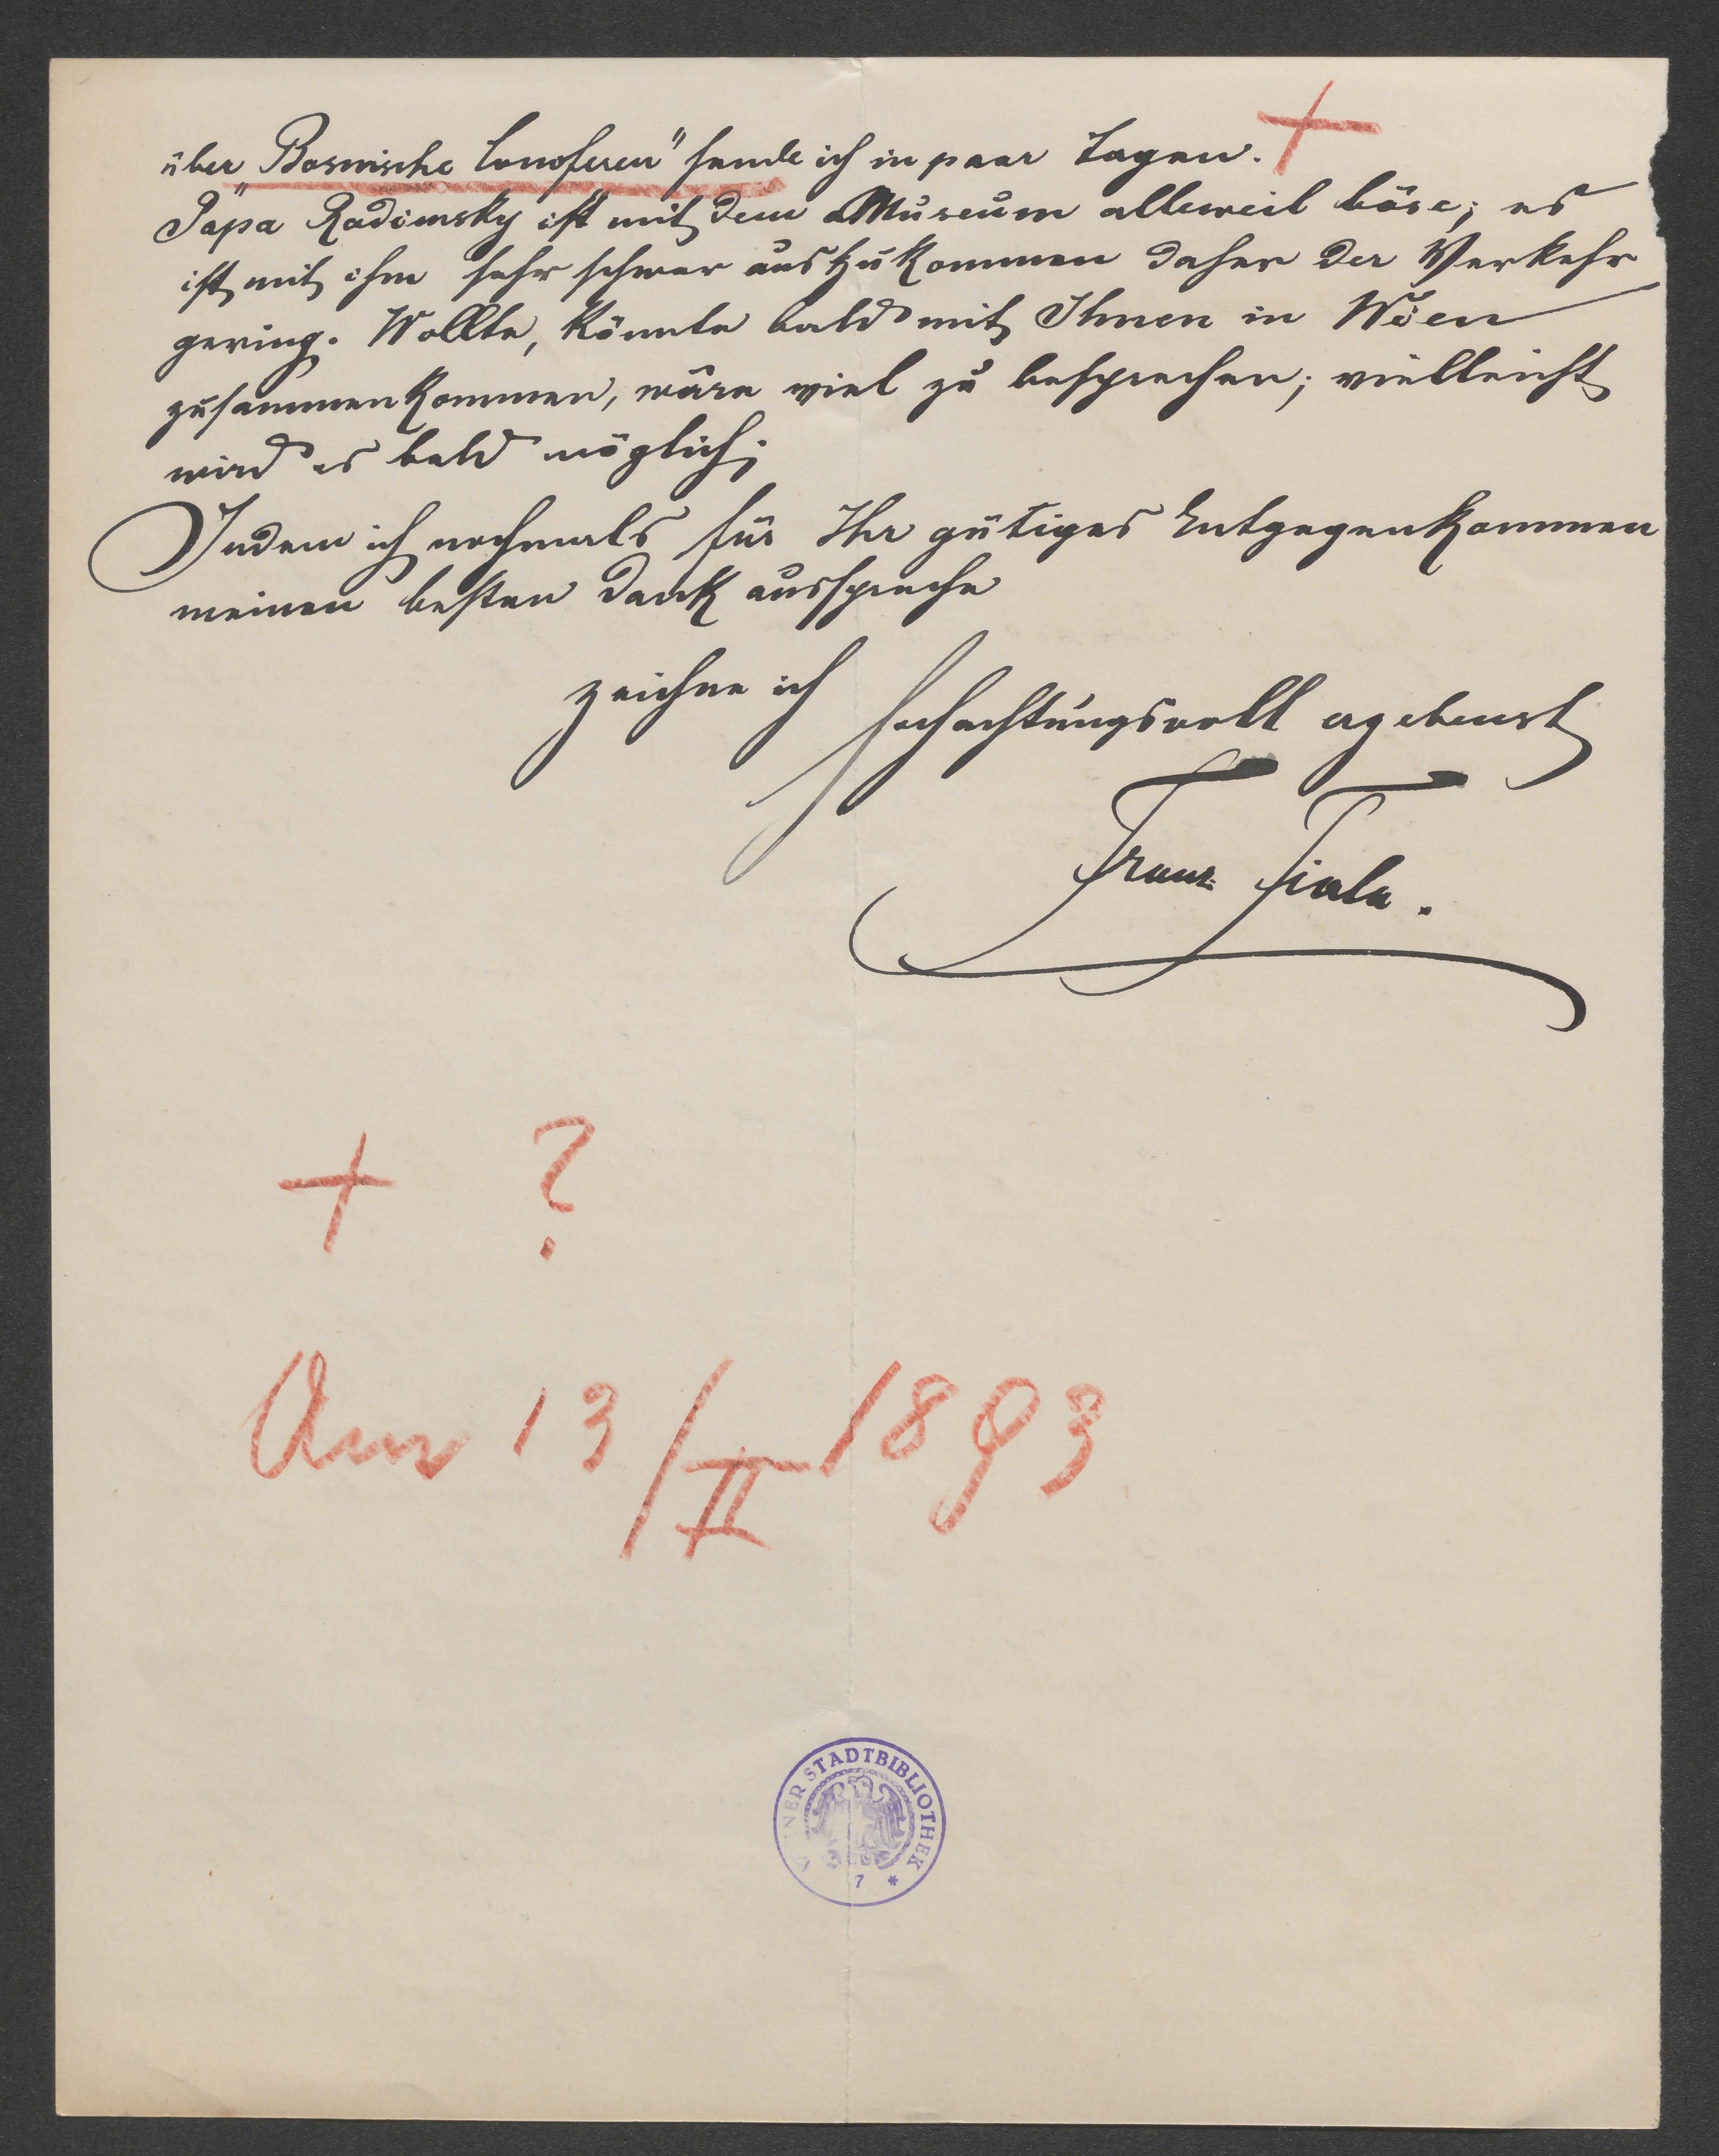 über „Bosnische Conoferen" sende ich in paar Tagen. +
Papa Radimsky ist mit dem Museum alleweil böse; es
ist mit ihm sehr schwer auszukommen daher der Verkehr
gering. Wollte, könnte bald mit Ihnen in Wien
zusammenkommen, wäre viel zu besprechen; vielleicht
wird es bald möglich;
Indem ich nochmals für Ihr gütiges Entgegenkommen
meinen besten Dank ausspreche
zeichne ich hochachtungsvoll ergebenst
Franz Fiala.
+ ?
Am 13/II 1893
WIENER STADTBIBLIOTHEK
7 *